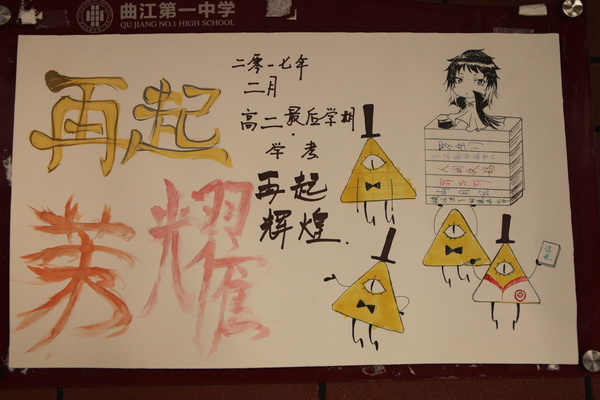 曲江第一中学
QU JIANG NO.1 HIGH SCHOOL
再起
荣耀
二零一七年
二月
高二最后学期
学考
再起
辉煌.
人间失格